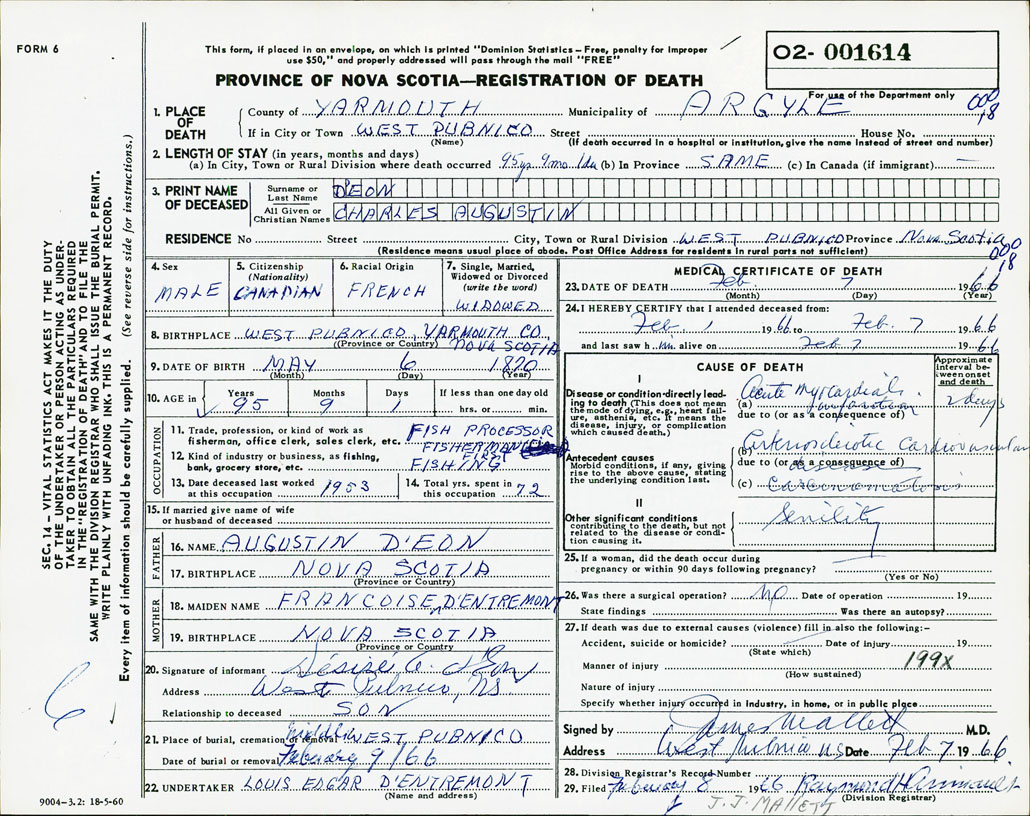 FORM 6
This form, if placed in an envelope, on which is printed "Dominion Statistics – Free, penalty for improper
use $50," and properly addressed will pass through the mail "FREE"
O2- 001614
PROVINCE OF NOVA SCOTIA—REGISTRATION OF DEATH
For use of the Department only
1. PLACE OF DEATH
County of YARMOUTH Municipality of ARGYLE
If in City or Town WEST PUBNICO Street House No.
(Name) (If death occurred in a hospital or institution, give the name instead of street and number)
2. LENGTH OF STAY (in years, months and days)
(a) In City, Town or Rural Division where death occurred 95 yrs 9 mo 1 da (b) In Province SAME (c) In Canada (if immigrant) —
3. PRINT NAME OF DECEASED
Surname or Last Name D'EON
All Given or Christian Names CHARLES AUGUSTIN
RESIDENCE No Street City, Town or Rural Division WEST PUBNICO Province NOVA SCOTIA
(Residence means usual place of abode. Post Office Address for residents in rural parts not sufficient)
4. Sex MALE
5. Citizenship (Nationality) CANADIAN
6. Racial Origin FRENCH
7. Single, Married, Widowed or Divorced (write the word) WIDOWED
8. BIRTHPLACE WEST PUBNICO, YARMOUTH CO.
(Province or Country) NOVA SCOTIA
9. DATE OF BIRTH MAY 6 1870
(Month) (Day) (Year)
10. AGE in Years Months Days If less than one day old
95 9 1 hrs. or min.
OCCUPATION
11. Trade, profession, or kind of work as
fisherman, office clerk, sales clerk, etc. FISH PROCESSOR
FISHERMAN FIRST
12. Kind of industry or business, as fishing,
bank, grocery store, etc. FISHING
13. Date deceased last worked at this occupation 1953
14. Total yrs. spent in this occupation 72
15. If married give name of wife
or husband of deceased
FATHER
16. NAME AUGUSTIN D'EON
17. BIRTHPLACE NOVA SCOTIA
(Province or Country)
MOTHER
18. MAIDEN NAME FRANCOISE D'ENTREMONT
19. BIRTHPLACE NOVA SCOTIA
(Province or Country)
20. Signature of informant Désiré A. d'Eon
Address West Pubnico, NS
Relationship to deceased SON
21. Place of burial, cremation or removal WEST PUBNICO
Date of burial or removal February 9/66
22. UNDERTAKER LOUIS EDGAR D'ENTREMONT
(Name and address)
9004–3.2: 18-5-60
MEDICAL CERTIFICATE OF DEATH
23. DATE OF DEATH Feb. 7 1966
(Month) (Day) (Year)
24. I HEREBY CERTIFY that I attended deceased from:
Feb. 1 1966 to Feb. 7 1966
and last saw him alive on Feb 7 1966
CAUSE OF DEATH
Approximate interval between onset and death
I
Disease or condition directly leading to death (This does not mean the mode of dying, e.g., heart failure, asthenia, etc. It means the disease, injury, or complication which caused death.)
(a) Acute myocardial infarction 2 days
due to (or as a consequence of)
Antecedent causes
Morbid conditions, if any, giving rise to the above cause, stating the underlying condition last.
(b) Arteriosclerotic Cardiovascular
due to (or as a consequence of)
(c) Carcinomatosis
II
Other significant conditions contributing to the death, but not related to the disease or condition causing it.
Senility
25. If a woman, did the death occur during
pregnancy or within 90 days following pregnancy?
(Yes or No)
26. Was there a surgical operation? No Date of operation 19
State findings Was there an autopsy?
27. If death was due to external causes (violence) fill in also the following:–
Accident, suicide or homicide? Date of injury 19
(State which)
199X
Manner of injury
(How sustained)
Nature of injury
Specify whether injury occurred in Industry, in home, or in public place
Signed by James Mallett M.D.
Address West Pubnico NS Date Feb 7 1966
28. Division Registrar's Record Number
29. Filed February 8 1966 Raymond H
(Division Registrar)
J. J. MALLETT
SEC. 14 – VITAL STATISTICS ACT MAKES IT THE DUTY
OF THE UNDERTAKER OR PERSON ACTING AS UNDER-
TAKER TO OBTAIN ALL THE PARTICULARS REQUIRED
IN THE "REGISTRATION OF DEATH" AND TO FILE THE
SAME WITH THE DIVISION REGISTRAR WHO SHALL ISSUE THE BURIAL PERMIT.
WRITE PLAINLY WITH UNFADING INK. THIS IS A PERMANENT RECORD.
Every item of information should be carefully supplied. (See reverse side for instructions.)